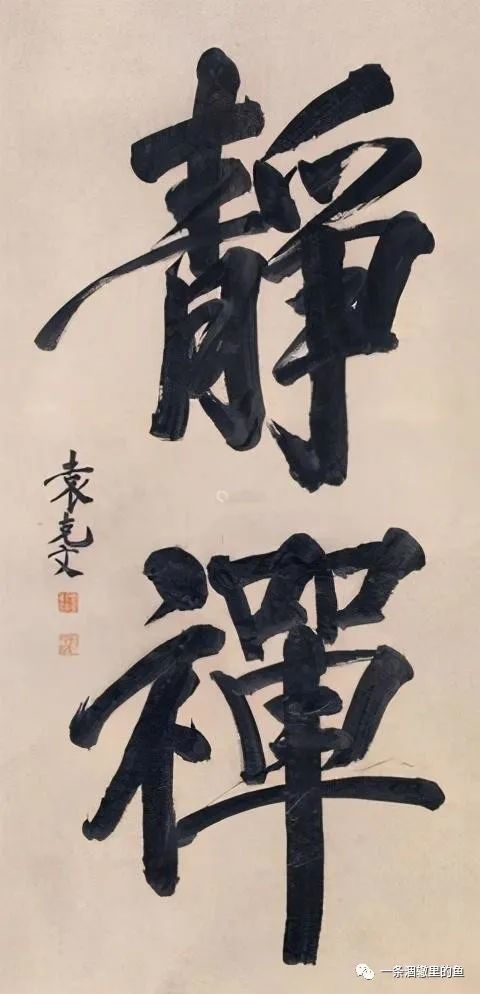 靜禪
袁克文
一条涸辙里的鱼